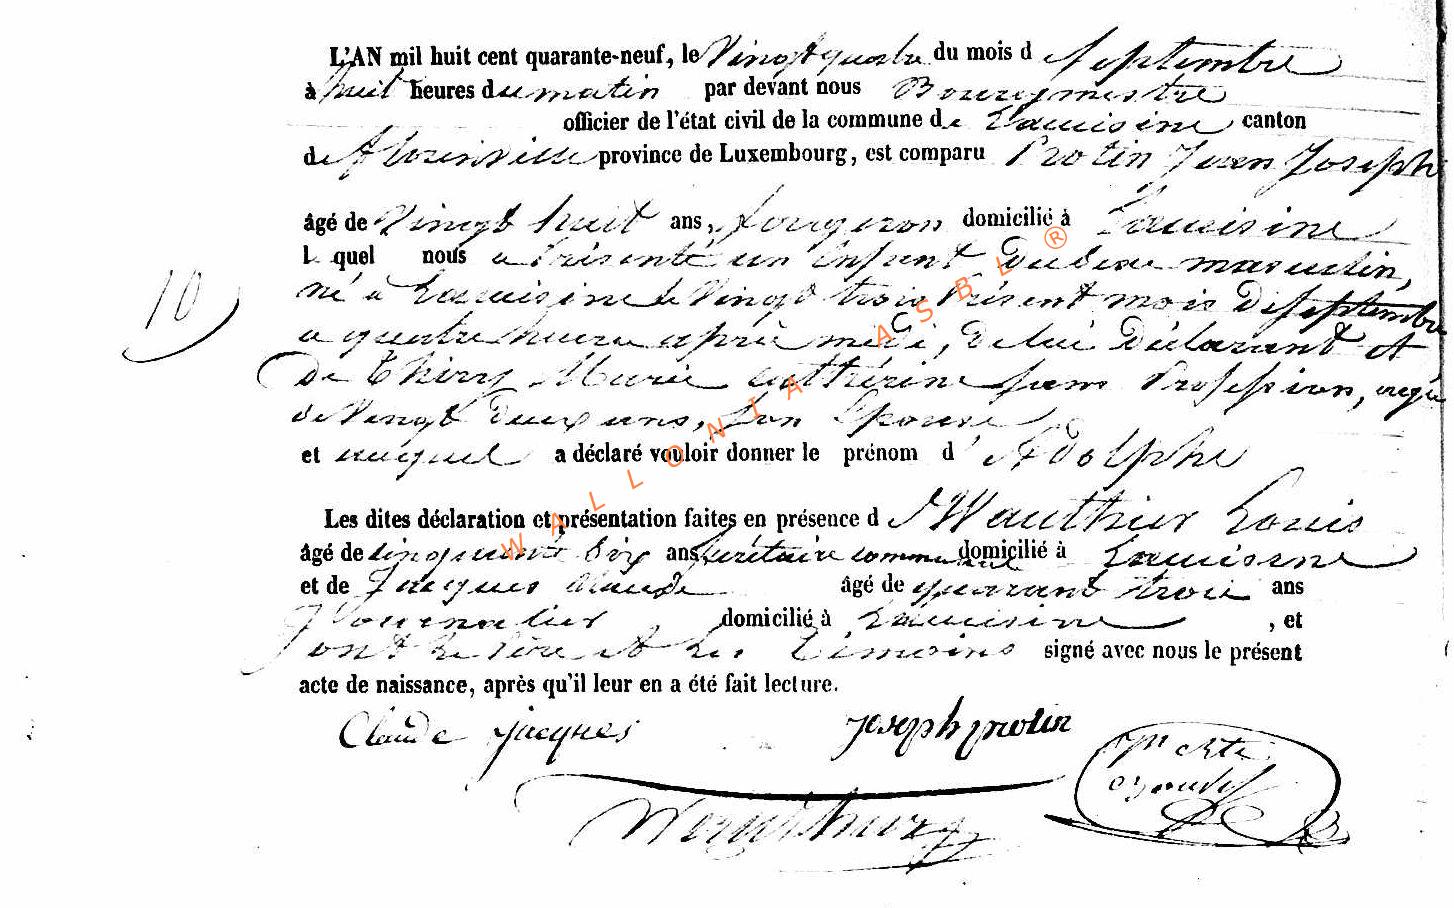 L'AN mil huit cent quarante-neuf, le Vingt quatre du mois d septembre
à huit heures du matin par devant nous Bourgmestre
officier de l'état civil de la commune de Lacuisine canton
de Florenville province de Luxembourg, est comparu Protin Jean Joseph
âgé de Vingt huit ans, forgeron domicilié à Lacuisine
le quel nous a Présenté un Enfant du Sexe masculin,
né à Lacuisine le Vingt trois Présent mois de septembre
a quatre heures après midi, de lui Déclarant et
10
de Thiry Marie Catthérine sans Profession, agée
de Vingt Deux ans, Son Epouse
et auquel a déclaré vouloir donner le prénom d' Adolphe
Les dites déclaration et présentation faites en présence d Wauthier Louis
âgé de cinquante Six ans Secrétaire communal domicilié à Lacuisine
et de Jacques Claude âgé de quarant trois ans
Journalier domicilié à Lacuisine , et
ont Le Père et Les Témoins signé avec nous le présent
acte de naissance, après qu'il leur en a été fait lecture.
Claude jacques Joseph protin
WALLONIA ASBL ®